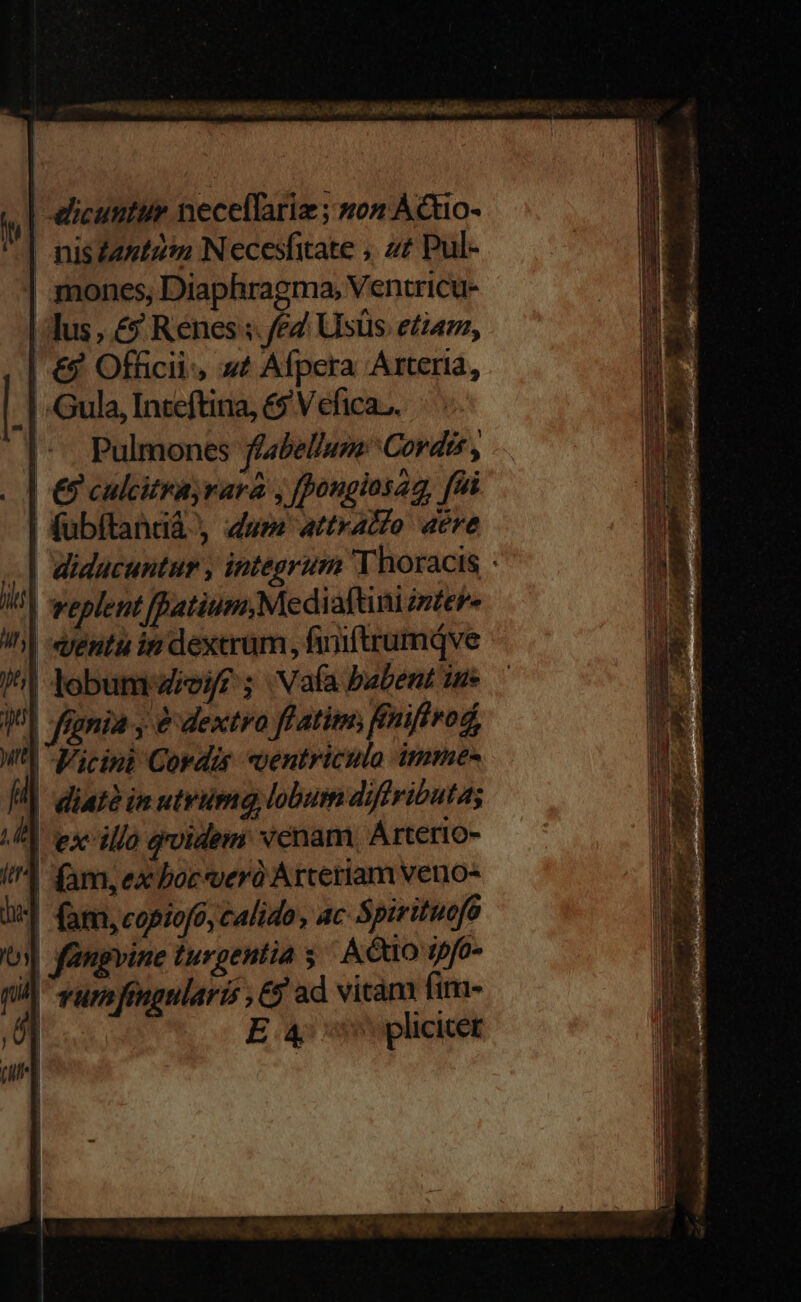 dicuntur neceſſariæ; non Actio-
nis tantùm Necesſitate, ut Pul-
mones, Diaphragma, Ventricu-
lus, & Renes; ſéd Usûs etiam,
& Officii, ut Aſpera Arteria,
Gula, Inteſtina, & Veſica.
Pulmones flabellum Cordis,
& culcitra, rarâ, ſpongiosâq, ſui
ſubſtantiâ, dum attracto aëre
diducuntur, integrum Thoracis
replent ſpatium, Mediaſtini inter-
ventu in dextrum, ſiniſtrumqve
lobum diviſi; Vaſa habent in-
ſignia, è dextro ſtatim, ſiniſtroq,
Vicini Cordis ventriculo imme-
diatè in utrumq, lobum diſtributa;
ex illo qvidem venam Arterio-
ſam, ex hoc verò Arteriam veno-
ſam, copioſo, calido, ac Spirituoſo
ſangvine turgentia; Actio ipſo-
rum ſingularis, & ad vitam ſim-
E 4 pliciter